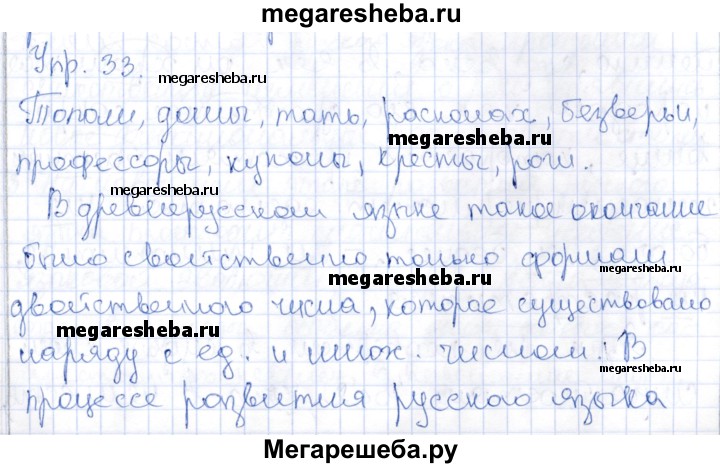 megaresheba.ru
Упр. 33.
megaresheba.ru
Тополи, домы, тать, раскопах, безверьи,
megaresheba.ru
профессоры, купоны, кресты, роги.
megaresheba.ru
В древнерусском языке такое окончание
было свойственно только формам
megaresheba.ru
megaresheba.ru
двойственного числа, которое существовало
megaresheba.ru
наряду с ед. и множ. числом. В
megaresheba.ru
процессе развития русского языка
Мегарешеба.ру